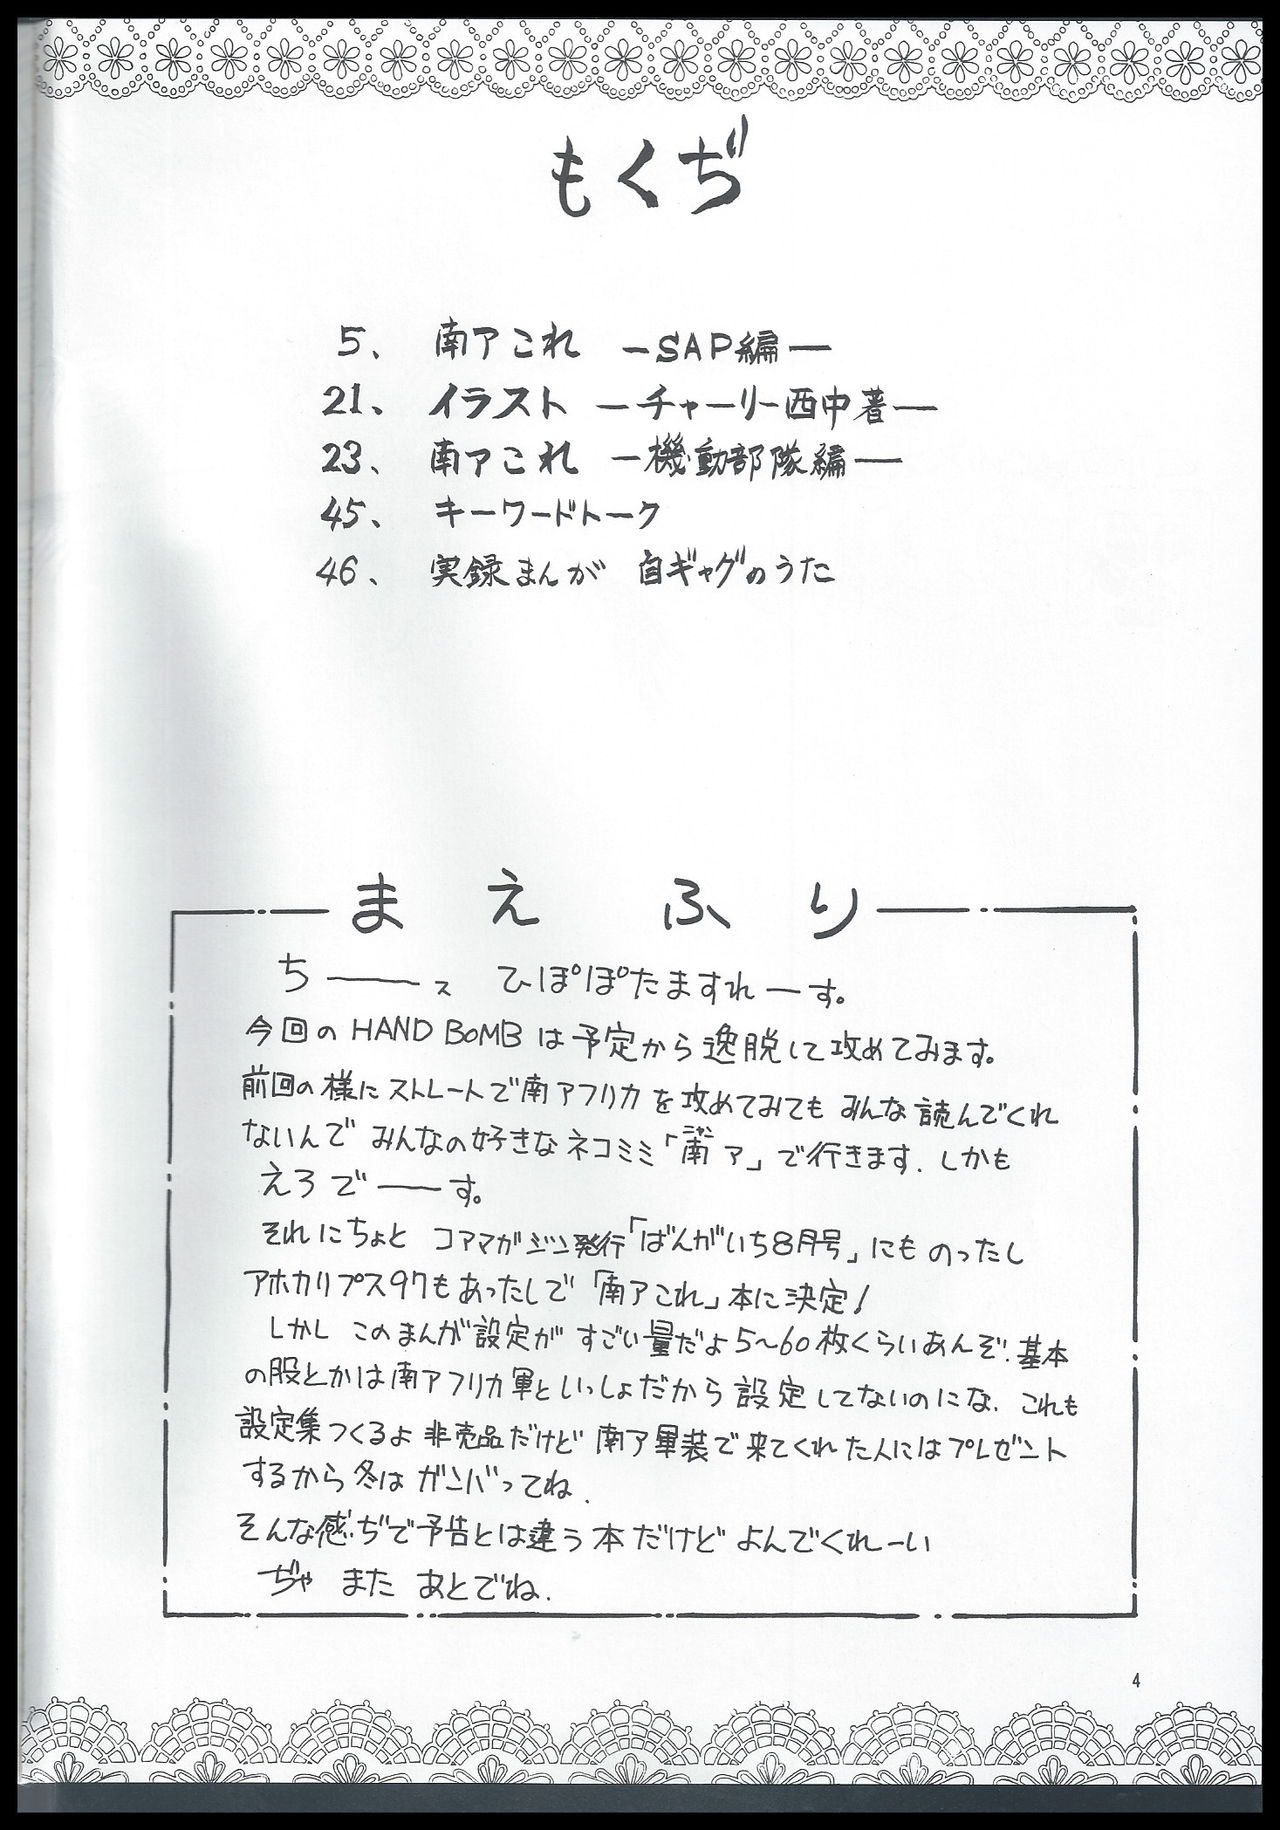 もくぢ
5、 南アこれ ーSAP編ー
21、 イラスト ーチャーリー西中著ー
23、 南アこれ ー機動部隊編ー
45、 キーワードトーク
46、 実録まんが 自ギャグのうた
まえふり
ちーース ひぽぽたますれーす。
今回のHAND BOMBは予定から逸脱して攻めてみます。
前回の様にストレートで南アフリカを攻めてみてもみんな読んでくれ
ないんで みんなの好きなネコミミ「南ア」で行きます. しかも
えろでーーす。
それにちょと コアマガジン発行「ばんがいち8月号」にものったし
アホカリプス97もあったしで「南アこれ」本に決定!
しかし このまんが設定が すごい量だよ 5〜60枚くらいあんぞ. 基本
の服とかは南アフリカ軍といっしょだから設定してないのにな. これも
設定集つくるよ 非売品だけど 南ア軍装で来てくれた人にはプレゼント
するから冬はガンバってね.
そんな感ぢで予告とは違う本だけど よんでくれーい
ぢゃ また あとでね.
4